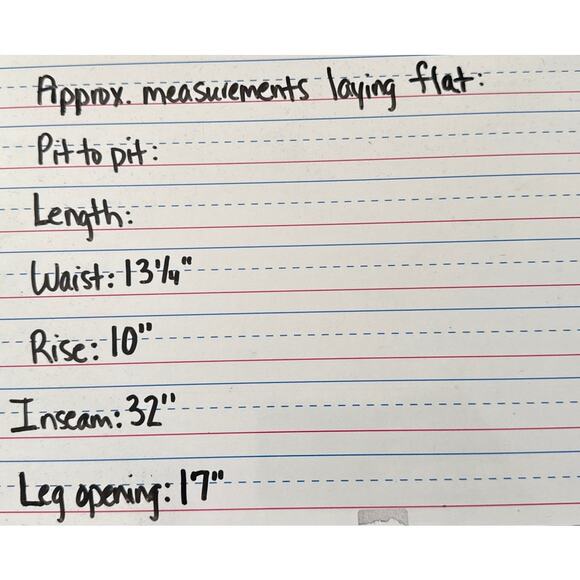 Approx. measurements laying flat:
Pit to pit:
Length:
Waist: 13 1/4"
Rise: 10"
Inseam: 32"
Leg opening: 17"